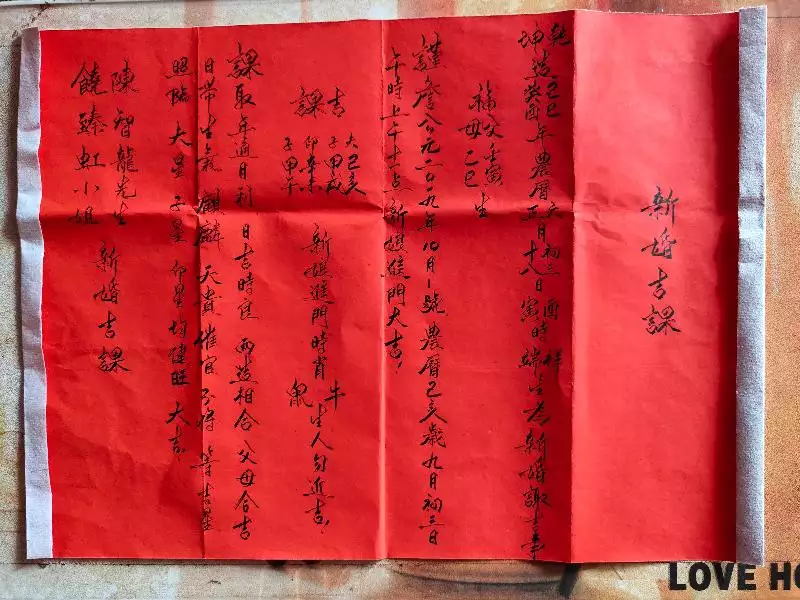 新婚吉課
乾 己巳 六 初三 酉 祥
坤造癸酉年農曆正月十八日寅時端生為新婚諏吉事
福父壬寅
母乙巳生
謹詹公元二〇一九年10月1號農曆己亥歲九月初三日
午時上午十一点新娘進門大吉!
吉課
己亥
子甲戌
卯辛未
子甲午
新娘進門時肖牛鼠生人勿近吉!
課取年通月利 日吉時良 兩造相合 父母合吉
日带生氣 麒麟 天貴 催官 不將 等吉星
照臨 大星 子星 卯星 均健旺 大吉
陳智龍先生
饒臻虹小姐
新婚吉課
LOVE HO